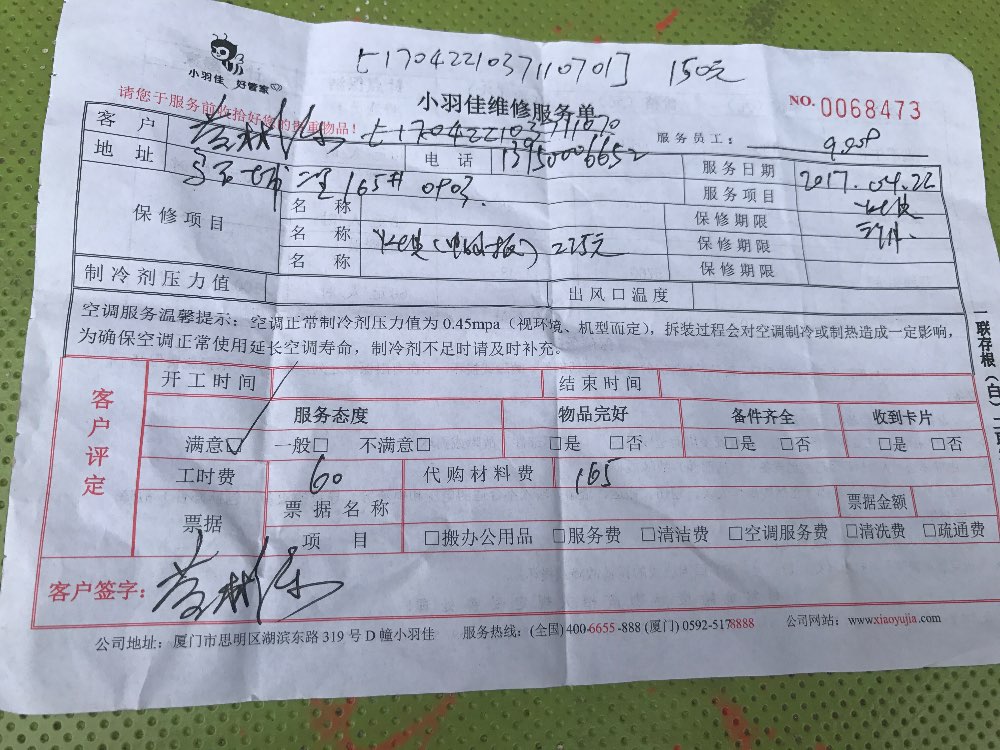 t1704221037110701] 150元
小羽佳 好管家
请您于服务前收拾好您的贵重物品!
小羽佳维修服务单
NO. 0068473
t17042210371110 70
服务员工:
客户
地址 电话 13950006652 服务日期 2017.04.22
165# 0903. 服务项目
保修项目 名称 保修期限
名称 225元 保修期限
名称 保修期限
制冷剂压力值 出风口温度
空调服务温馨提示:空调正常制冷剂压力值为 0.45mpa(视环境、机型而定),拆装过程会对空调制冷或制热造成一定影响,
为确保空调正常使用延长空调寿命,制冷剂不足时请及时补充。
一联存根(白)
客户评定
开工时间 结束时间
服务态度 物品完好 备件齐全 收到卡片
满意☑ 一般□ 不满意□ □是 □否 □是 □否 □是 □否
工时费 60 代购材料费 165
票据 票据名称 票据金额
项目 □搬办公用品 □服务费 □清洁费 □空调服务费 □清洗费 □疏通费
客户签字:
公司地址:厦门市思明区湖滨东路 319 号 D 幢小羽佳 服务热线:(全国) 400-6655-888 (厦门) 0592-5178888 公司网站:www.xiaoyujia.com